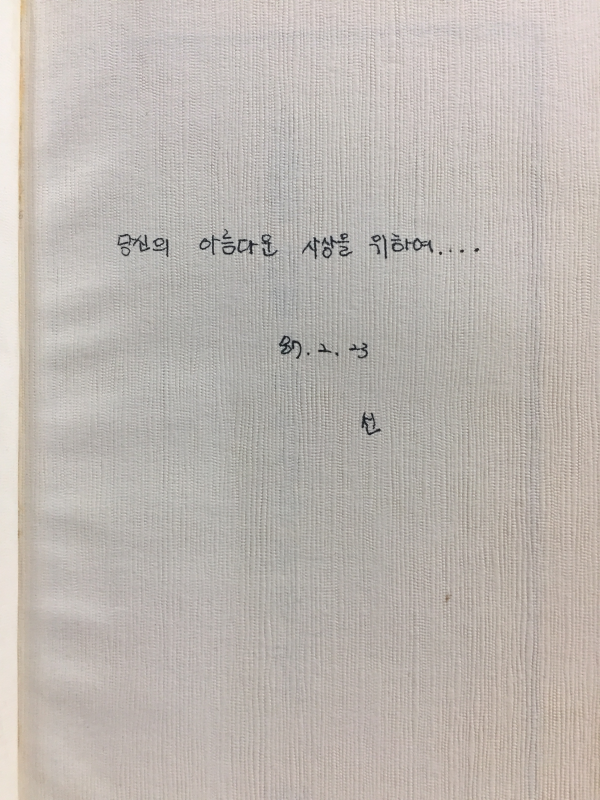 당신의 아름다운 사상을 위하여....
87. 2. 23
선